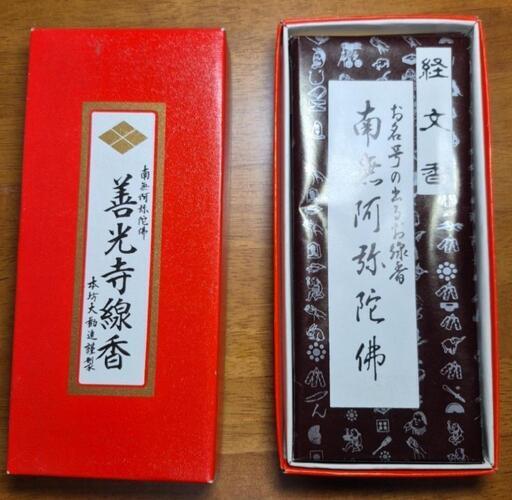 南無阿弥陀佛
善光寺線香
本坊大勧進謹製
経文香
お名号の出るお線香
南無阿弥陀佛